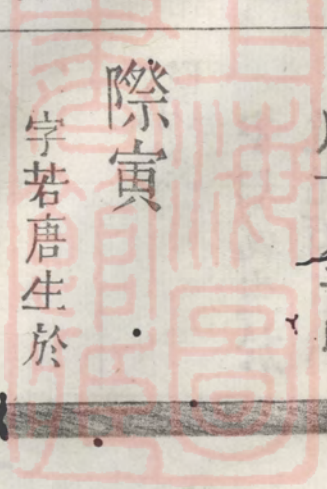 際寅
字若唐生於